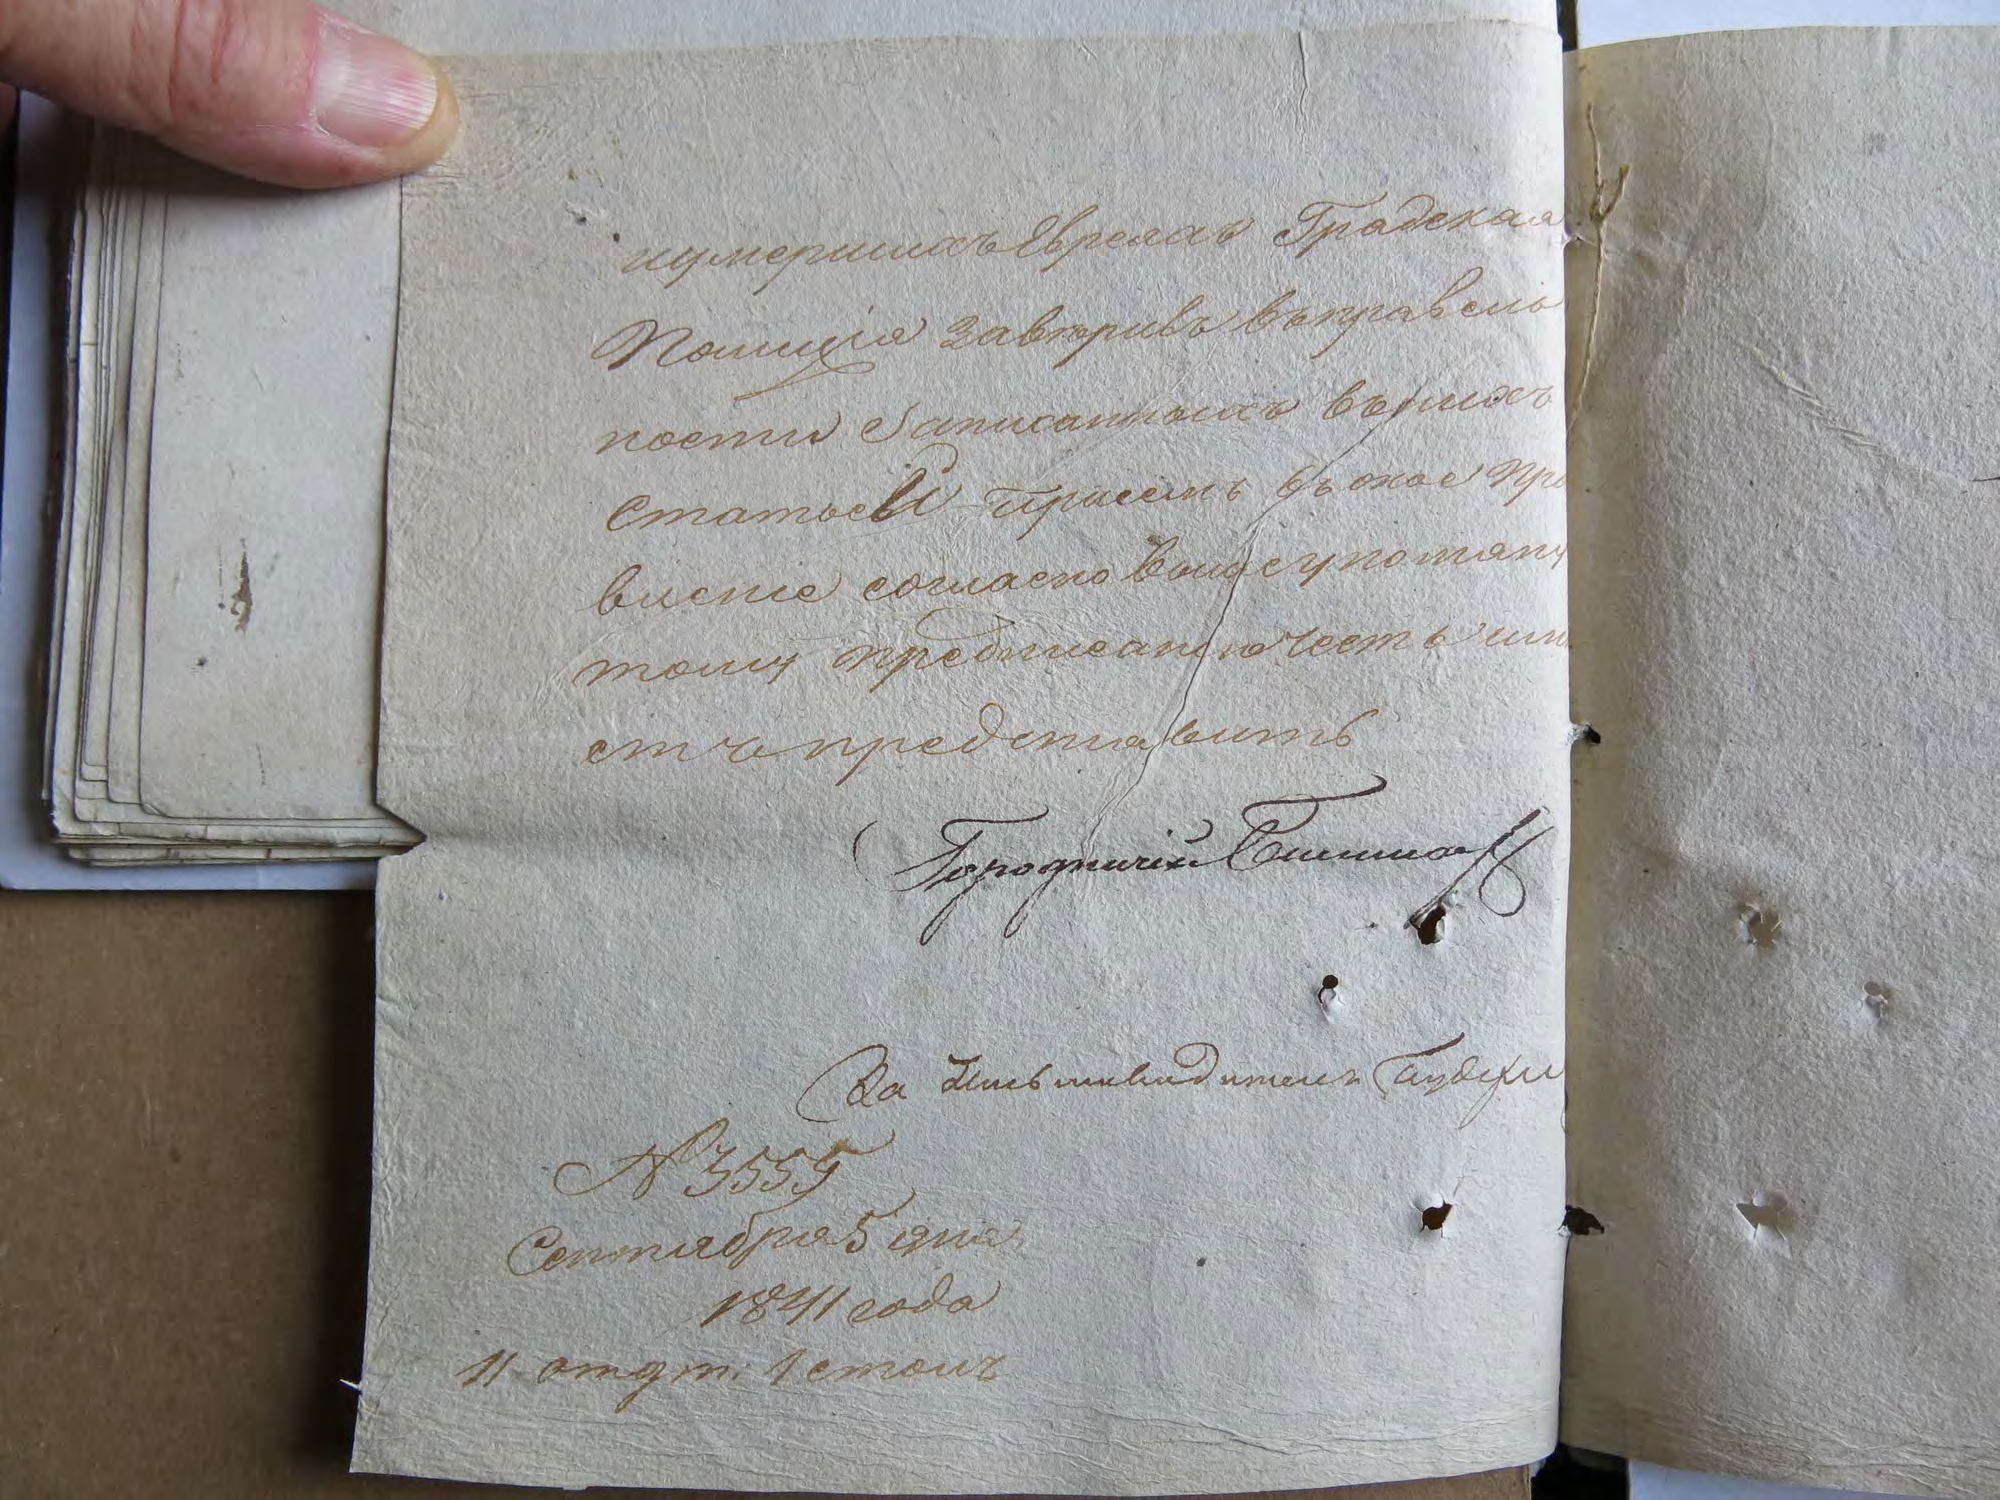 иумершихъ Евреяхъ Градская
Полиція Завѣривъ въправель
ности Записанныхъ вънихъ
статьей При семъ въ оное пра
вленіе согласно вышеупомяну
тому предписанію честь имѣ
етъ представить
Городничій
За Письмоводителя
№ 3555
Сентября 5 дня
1841 года
11 отдѣ. 1 столъ